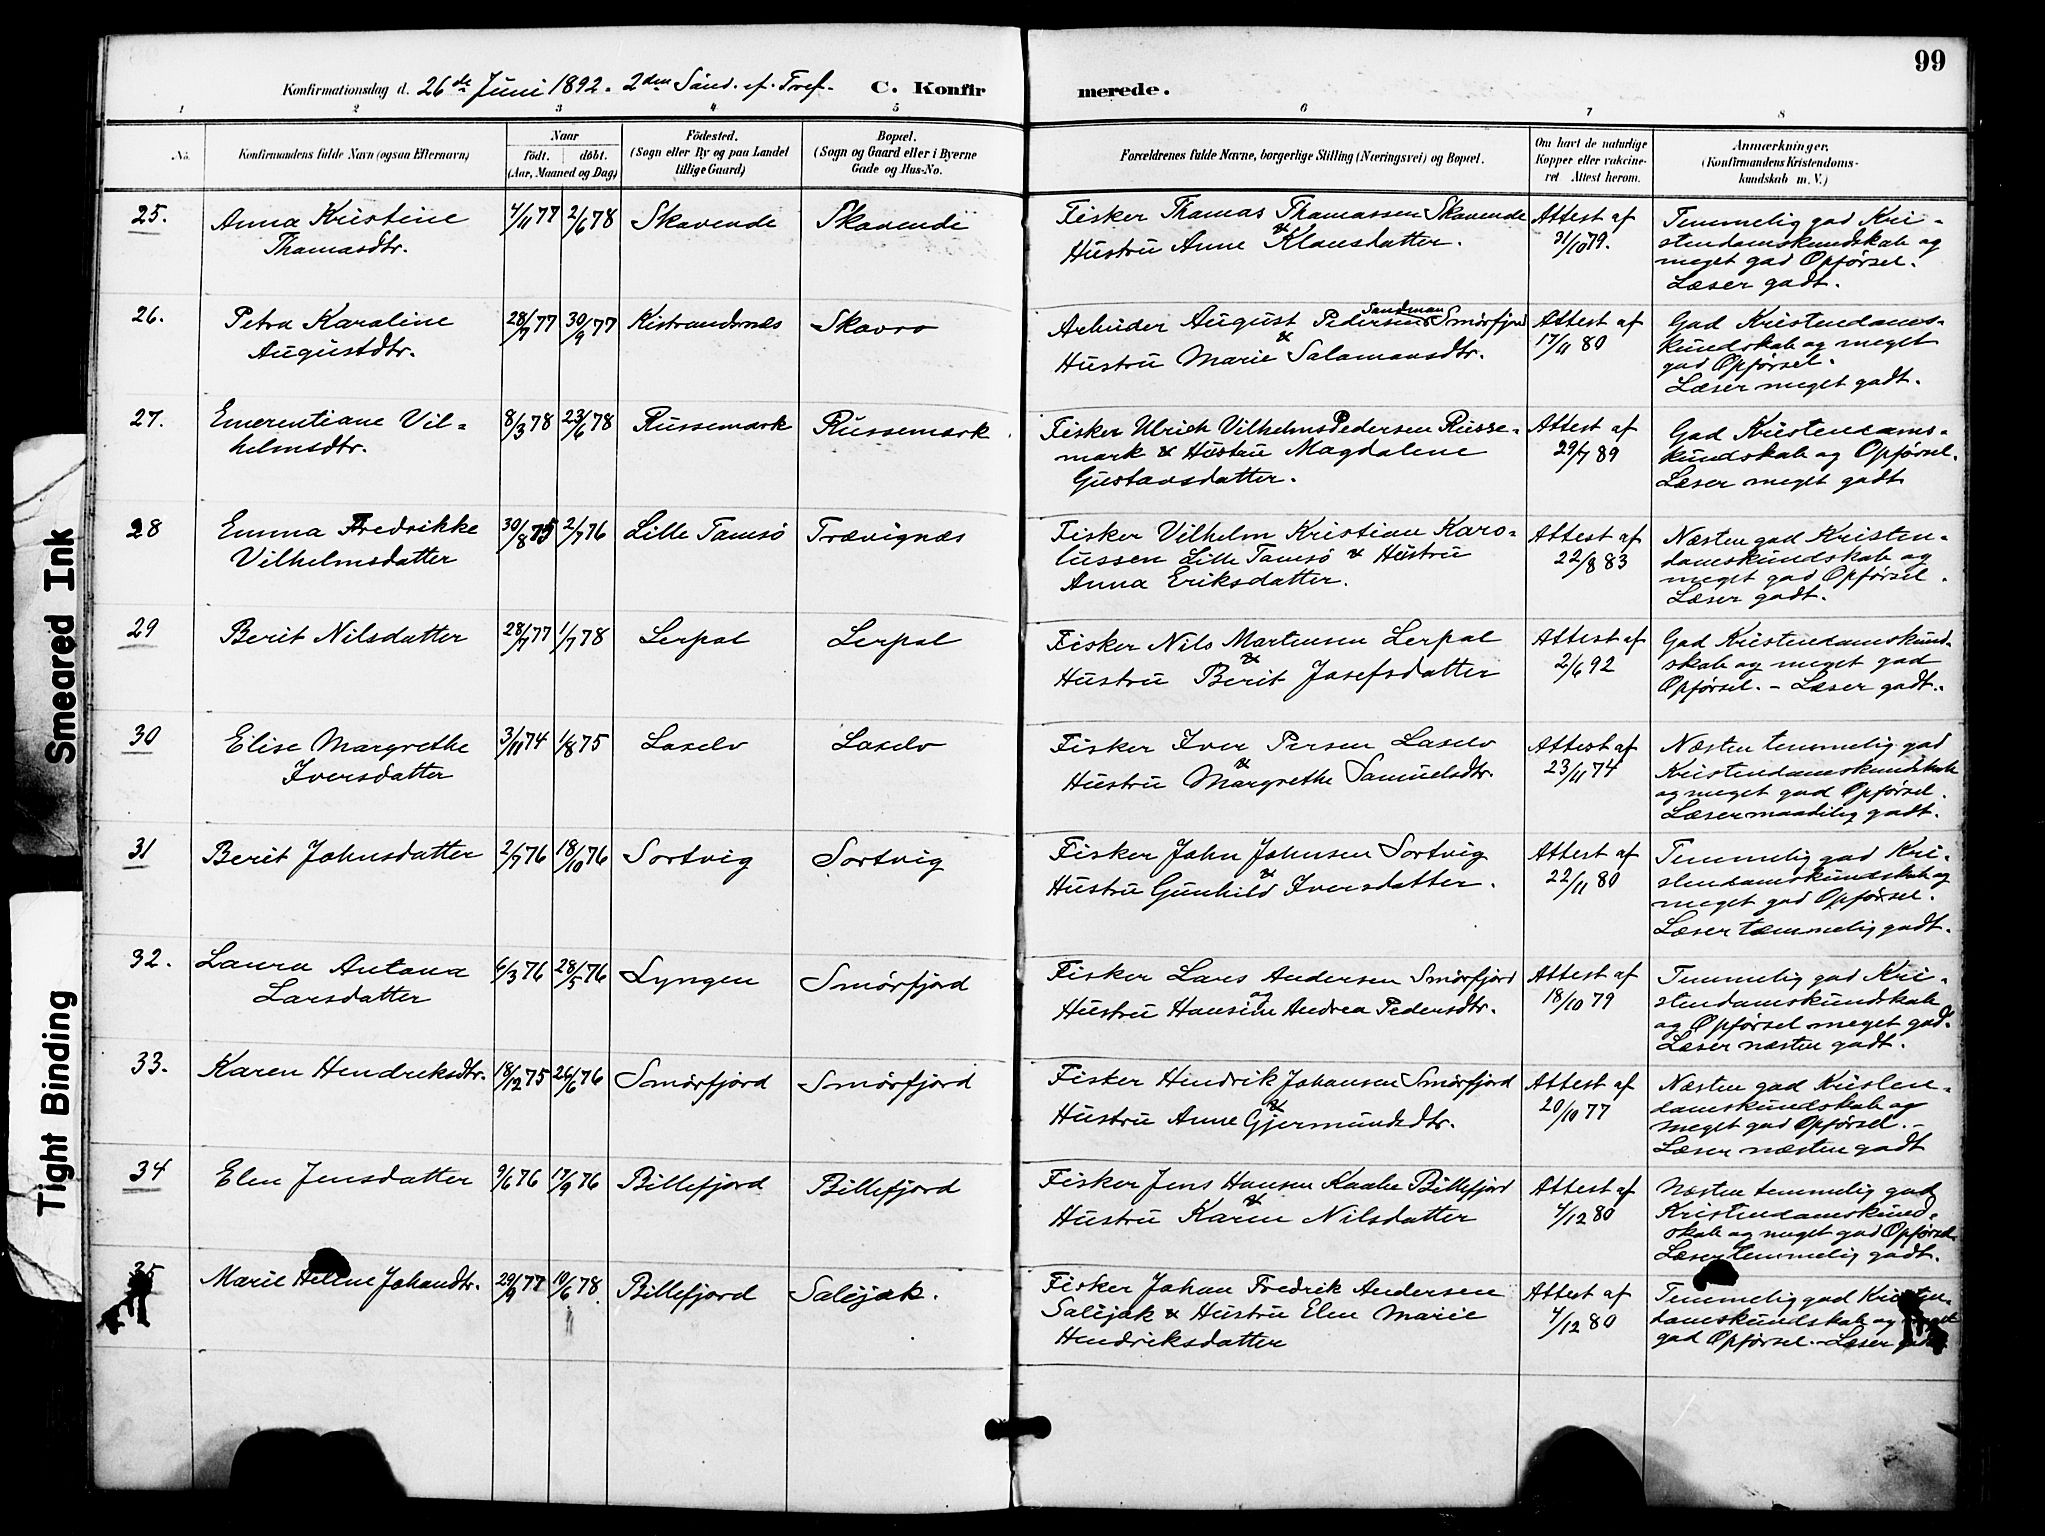 99
Konfirmationsdag d. 26de Juni 1892. 2den Sönd. ef. Tref. C. Konfirmerede.
1 2 3 4 5 6 7 8
No.
Konfirmandens fulde Navn (ogsaa Efternavn)
Naar
födt. döbt.
(Aar, Maaned og Dag)
Födested.
(Sogn eller By og paa Landet
tillige Gaard)
Bopæl.
(Sogn og Gaard eller i Byerne
Gade og Hus-No.
Forældrenes fulde Navne, borgerlige Stilling (Næringsvei) og Bopæl.
Om havt de naturlige
Kopper eller vakcine-
ret Attest herom.
Anmærkninger,
(Konfirmandens Kristendoms-
kundskab m. V.)
25. Anna Kristine
Thomasdtr.
4/11 77 2/6 78 Skavende Skavende
Fisker Thomas Thomassen Skavende
&
Hustru Anne Klausdatter.
Attest af
31/10 79.
Temmelig god Kri-
stendomskundskab og
meget god Opførsel.
Læser godt.
26. Petra Karoline
Augustdtr.
28/7 77 30/9 77 Kistrandsnæs Skavro
Sandman
Arbeider August Pedersen Smörfjord
&
Hustru Marie Salamonsdtr.
Attest af
17/11 80
God Kristendoms-
kundskab og meget
god Opførsel.
Læser meget godt.
27. Emerentiane Vil-
helmsdtr.
8/3 78 23/6 78 Russemark Russemark
Fisker Ulrich Vilhelms Pedersen Russe-
mark & Hustru Magdalene
Gustavsdatter.
Attest af
29/7 89
God Kristendoms-
kundskab og Opførsel.
Læser meget godt
28 Emma Fredrikke
Vilhelmsdatter
30/8 75 2/7 76 Lille Tamsö Trævignæs
Fisker Vilhelm Kristian Karo-
lussen Lille Tamsö & Hustru
Anna Eriksdatter.
Attest af
22/8 83
Næsten god Kristen-
domskundskab og
meget god Opførsel.
Læser godt.
29 Berit Nilsdatter
28/7 77 1/7 78 Lerpol Lerpol
Fisker Nils Mortensen Lerpol
&
Hustru Berit Josefsdatter
Attest af
2/6 92
God Kristendomskund-
skab og meget god
Opførsel. - Læser godt.
30 Elise Margrethe
Iversdatter
3/11 74 1/8 75 Laxelv Laxelv
Fisker Iver Persen Laxelv
&
Hustru Margrethe Samuelsdtr.
Attest af
23/11 74
Næsten temmelig god
Kristendomskundskab
og meget god Opførsel.
Læser maadelig godt.
31 Berit Johnsdatter
2/7 76 18/10 76 Sortvig Sortvig
Fisker John Johnsen Sortvig
&
Hustru Gunhild Iversdatter.
Attest af
22/11 80
Temmelig god Kri-
stendomskundskab og
meget god Opførsel.
Læser temmelig godt.
32. Laura Antona
Larsdatter
6/3 76 28/5 76 Lyngen Smörfjord
Fisker Lars Andersen Smörfjord
og
Hustru Hansine Andrea Pedersdtr.
Attest af
18/10 79
Temmelig god Kri-
stendomskundskab
og Opførsel meget god.
Læser næsten godt.
33. Karen Hendriksdtr.
18/12 75 26/6 76 Smörfjord Smörfjord
Fisker Hendrik Johansen Smörfjord
&
Hustru Anne Gjermundsdtr.
Attest af
20/10 77
Næsten god Kristen-
domskundskab og
meget god Opførsel. -
Læser næsten godt
34 Elen Jensdatter
9/6 76 17/9 76 Billefjord Billefjord
Fisker Jens Hansen Kaabe Billefjord
&
Hustru Karen Nilsdatter
Attest af
4/12 80
Næsten temmelig god
Kristendomskund-
skab og meget god Opførsel.
Læser temmelig godt.
35 Marie Helene Johandtr.
29/9 77 10/6 78. Billefjord Saløjak.
Fisker Johan Fredrik Andersen
Saløjak & Hustru Elen Marie
Hendriksdatter
Attest af
4/12 80
Temmelig god Kristen-
domskundskab og meget
god Opførsel. - Læser godt.
Smeared Ink
Tight Binding